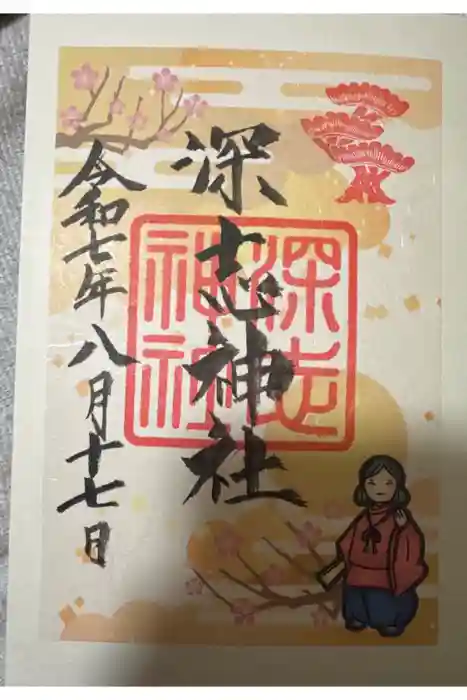 深志神社
深志
神社
令和七年八月十七日